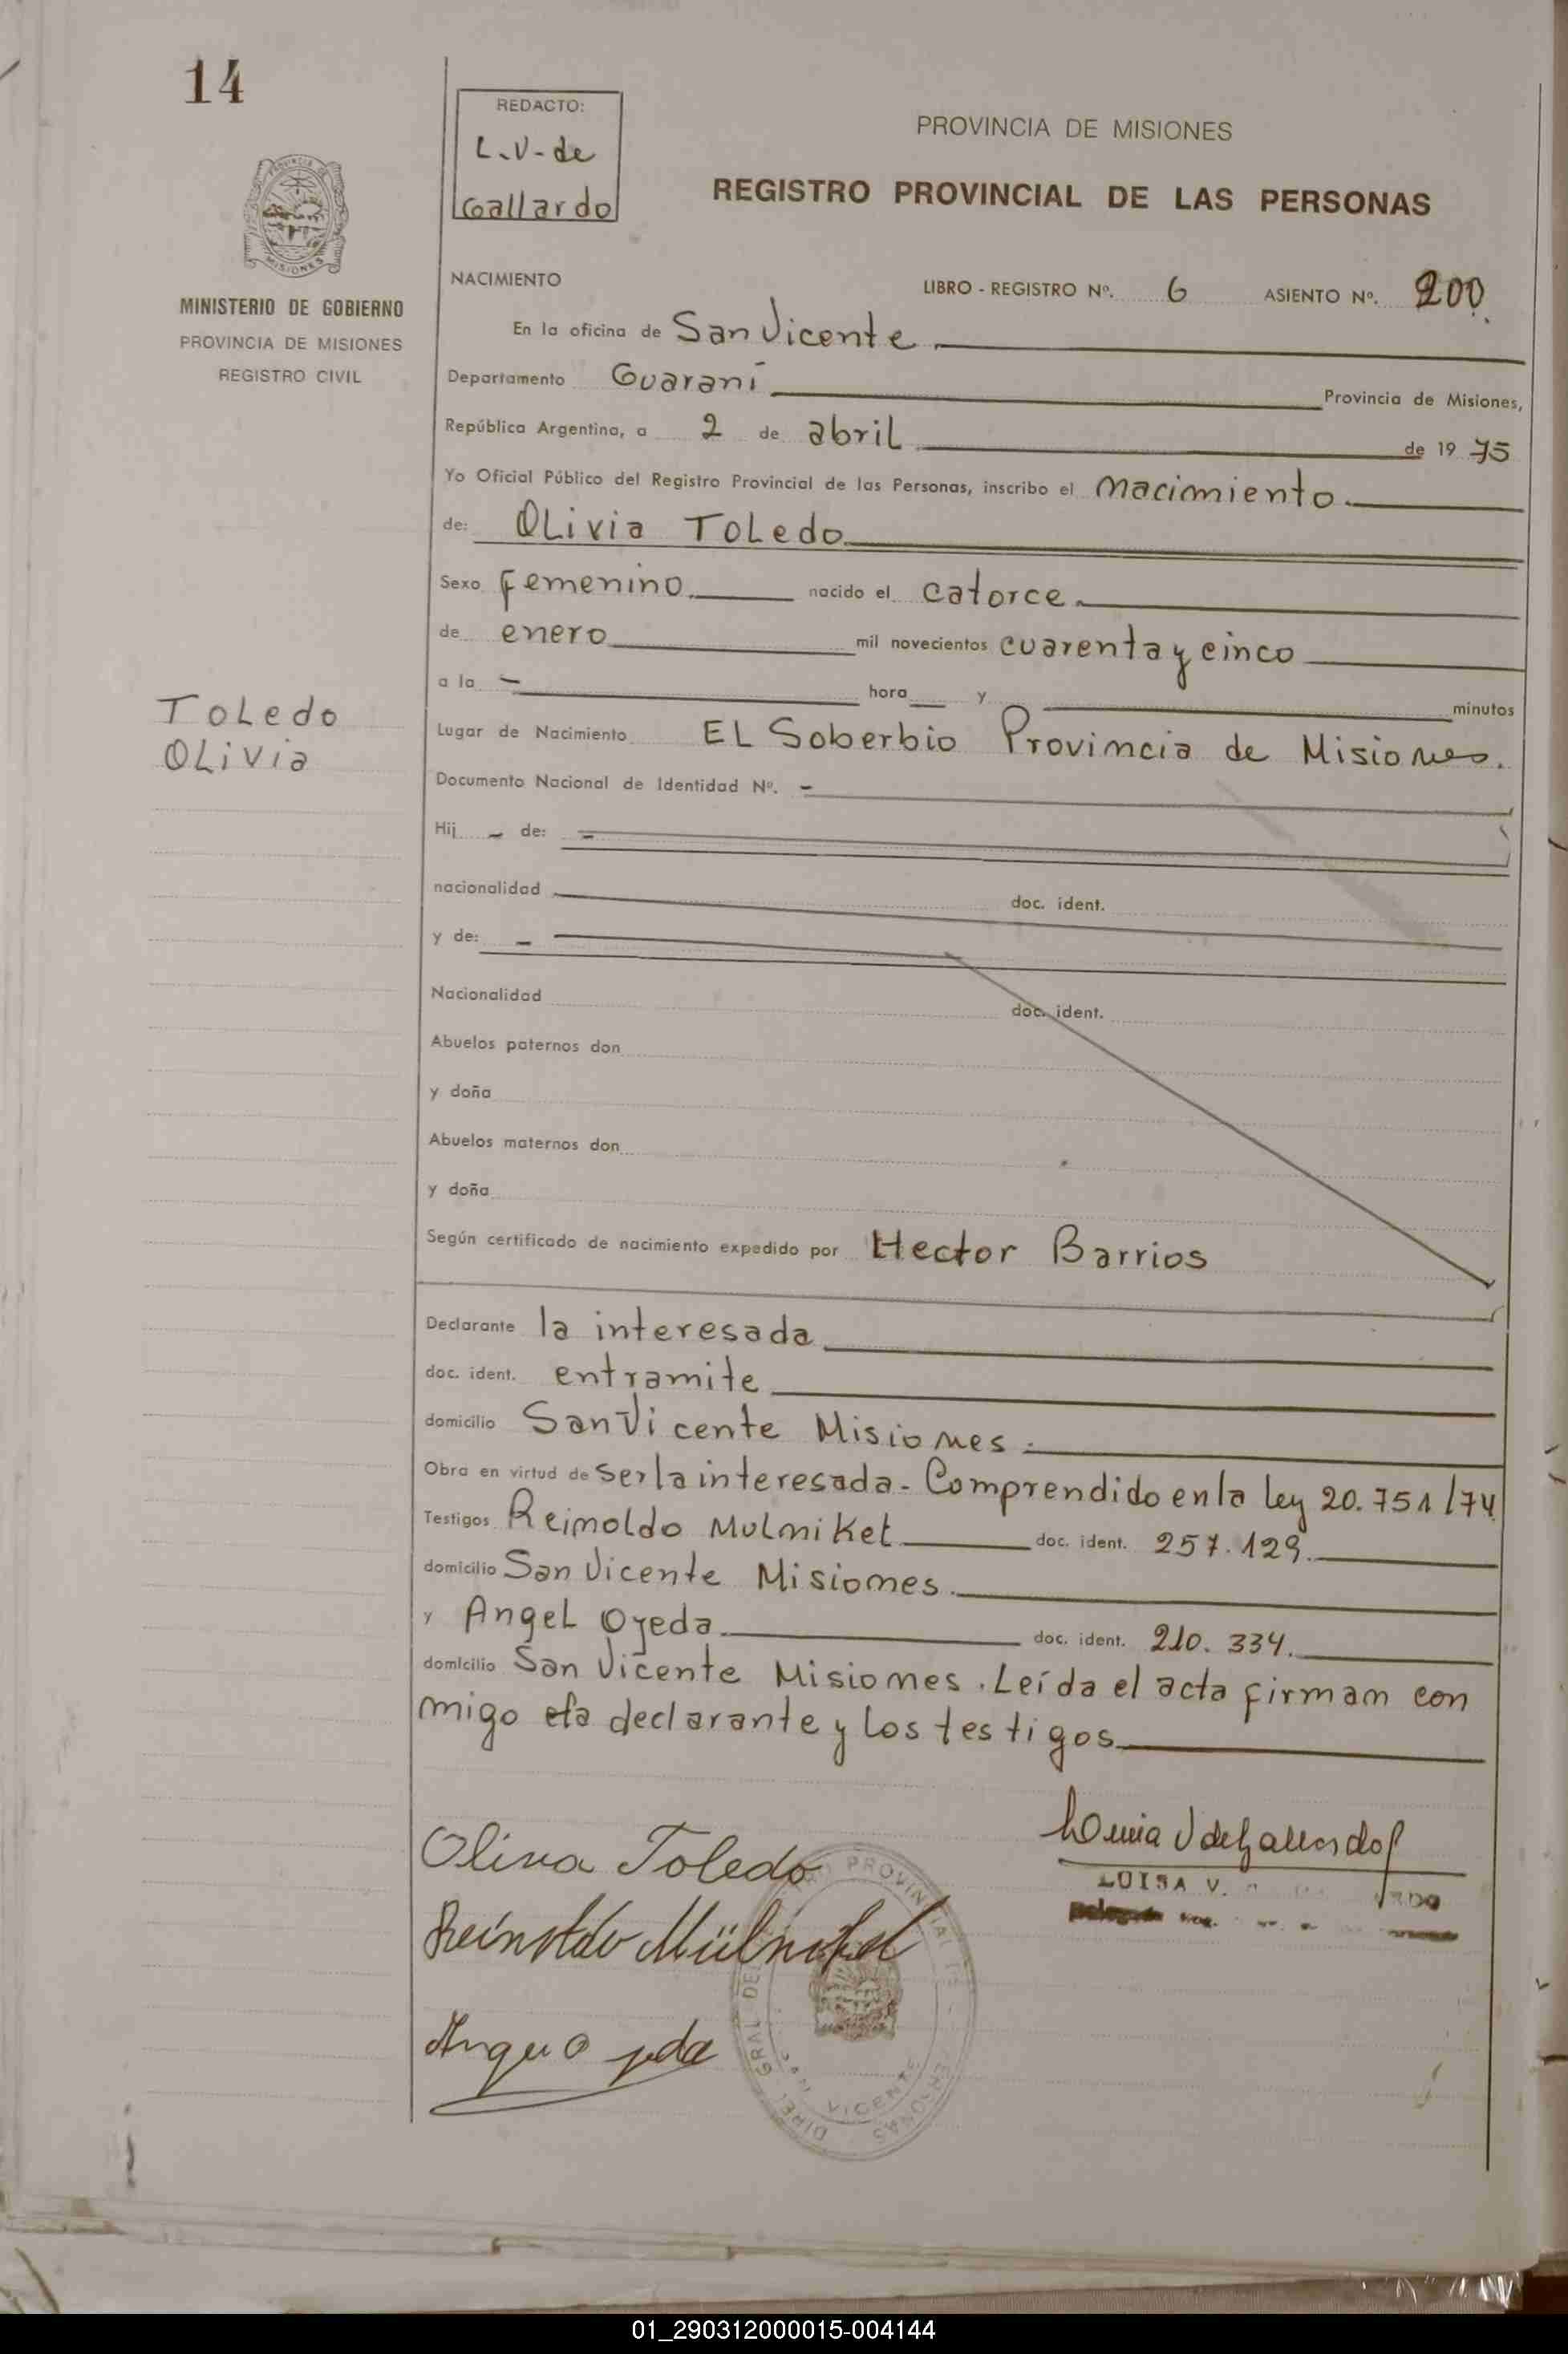 14
REDACTO:
L.V-de
Gallardo
PROVINCIA DE MISIONES
REGISTRO PROVINCIAL DE LAS PERSONAS
PROVINCIA DE
MISIONES
MINISTERIO DE GOBIERNO
PROVINCIA DE MISIONES
REGISTRO CIVIL
NACIMIENTO LIBRO - REGISTRO Nº. 6 ASIENTO Nº. 200
En la oficina de San Vicente
Departamento Guaraní Provincia de Misiones,
República Argentina, a 2 de abril de 19 75
Yo Oficial Público del Registro Provincial de las Personas, inscribo el nacimiento
de: Olivia Toledo
Sexo femenino nacido el catorce
de enero mil novecientos cuarenta y cinco
a la - hora y minutos
Toledo
Olivia
Lugar de Nacimiento El Soberbio Provincia de Misiones.
Documento Nacional de Identidad Nº. -
Hij - de: -
nacionalidad doc. ident.
y de: -
Nacionalidad doc. ident.
Abuelos paternos don
y doña
Abuelos maternos don
y doña
Según certificado de nacimiento expedido por Hector Barrios
Declarante la interesada
doc. ident. entramite
domicilio San Vicente Misiones.
Obra en virtud de ser la interesada - Comprendido en la ley 20.751/74
Testigos Reinoldo Mulniket doc. ident. 257.129.
domicilio San Vicente Misiones.
y Angel Ojeda doc. ident. 210.334.
domicilio San Vicente Misiones. Leída el acta firman con
migo la declarante y los testigos
Oliva Toledo
LUISA V.
SAN VICENTE
01_290312000015-004144